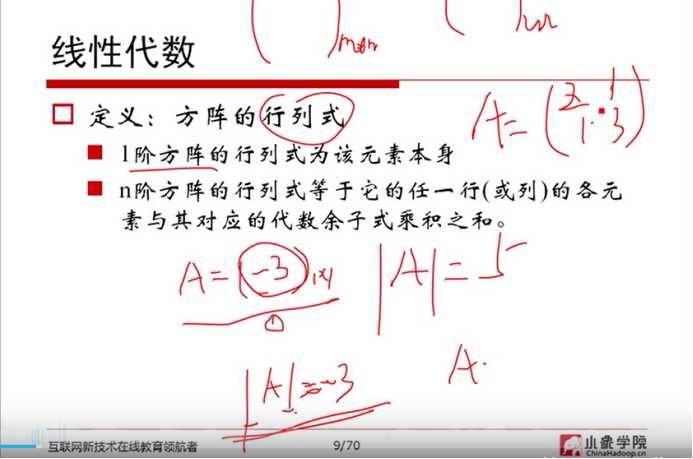 ( )m×n ( )n×n
线性代数
□ 定义：方阵的行列式
A = (2 1
1 3)
■ 1阶方阵的行列式为该元素本身
■ n阶方阵的行列式等于它的任一行(或列)的各元
素与其对应的代数余子式乘积之和。
A = (-3)1×1
|A| = 5
|A| = -3
A
互联网新技术在线教育领航者
9/70
小象学院
ChinaHadoop.cn